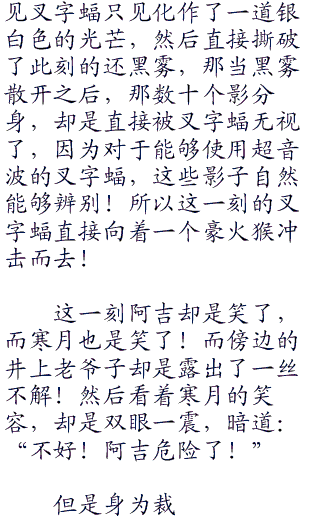 见叉字蝠只见化作了一道银
白色的光芒，然后直接撕破
了此刻的还黑雾，那当黑雾
散开之后，那数十个影分
身，却是直接被叉字蝠无视
了，因为对于能够使用超音
波的叉字蝠，这些影子自然
能够辨别！所以这一刻的叉
字蝠直接向着一个豪火猴冲
击而去！
这一刻阿吉却是笑了，
而寒月也是笑了！而傍边的
井上老爷子却是露出了一丝
不解！然后看着寒月的笑
容，却是双眼一震，暗道：
“不好！阿吉危险了！”
但是身为裁